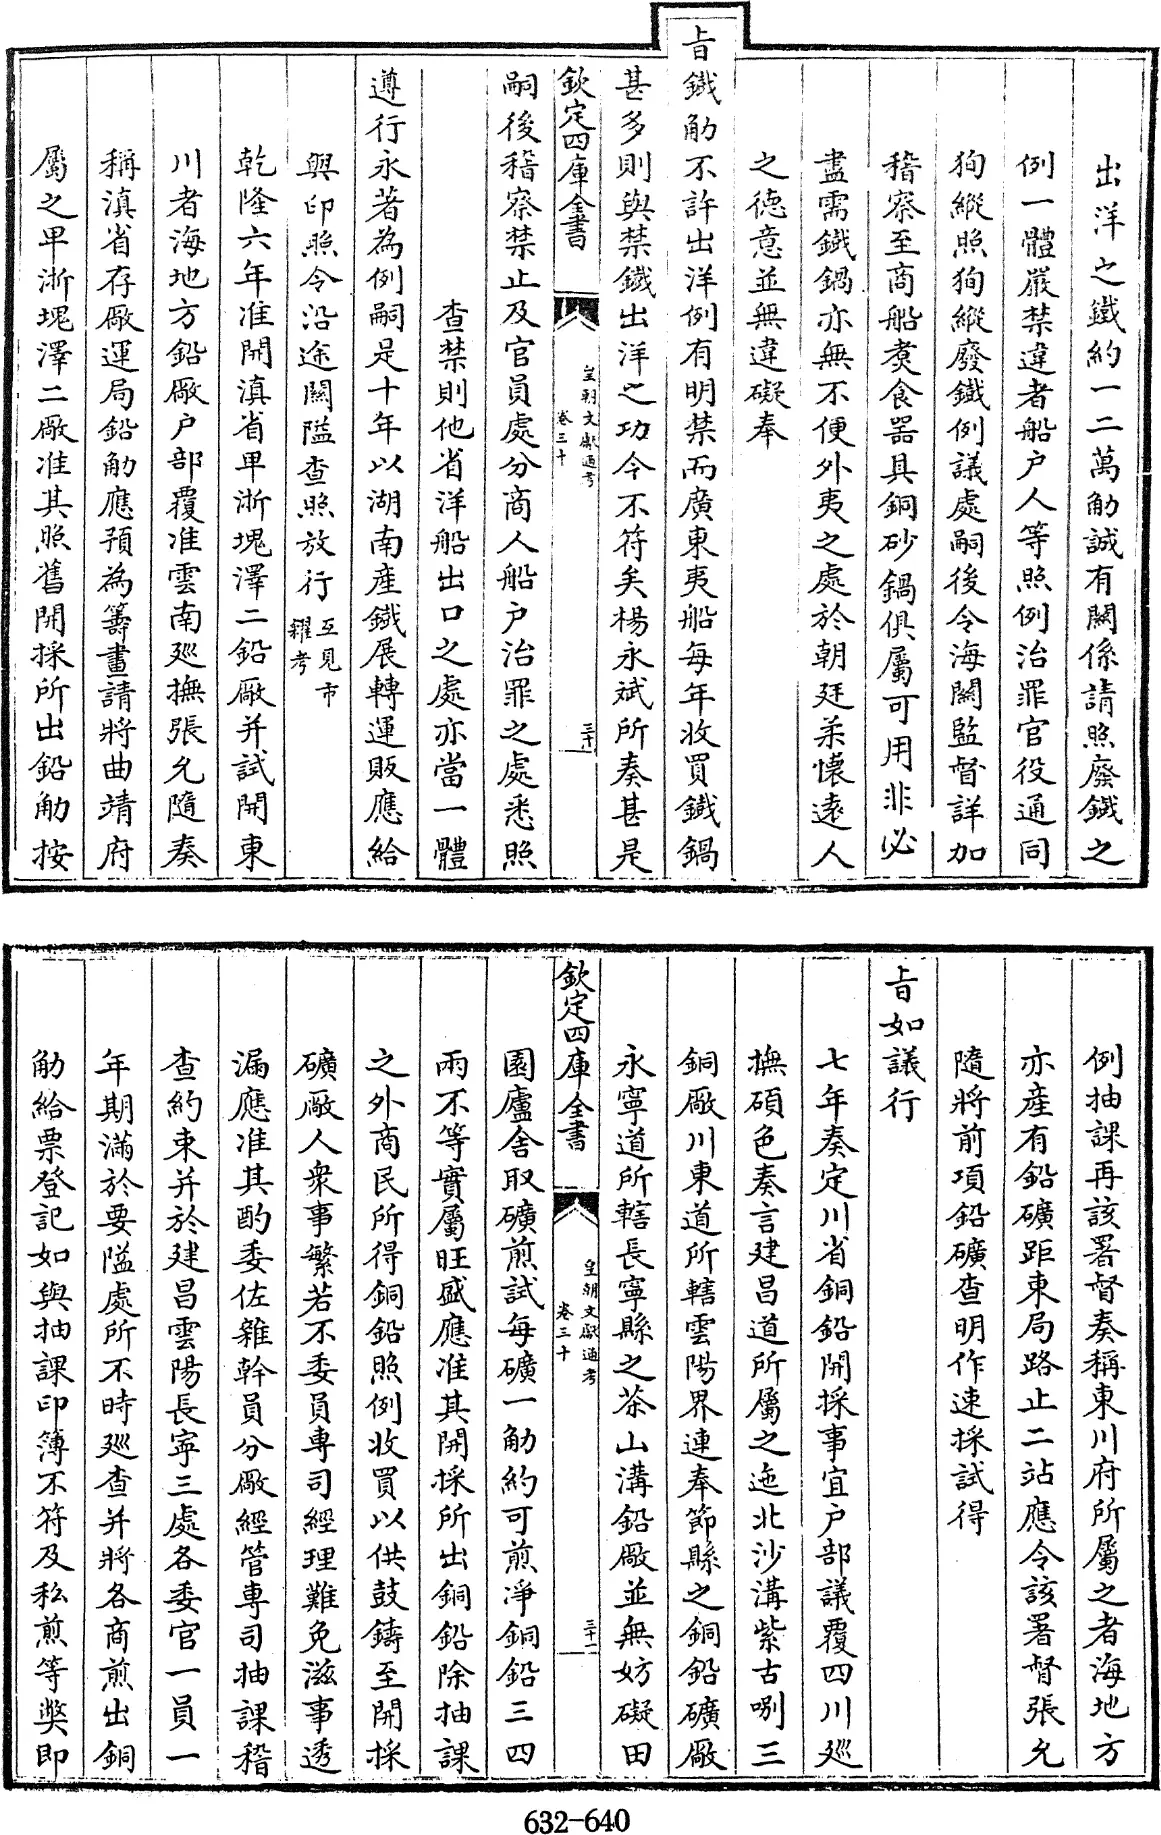 出洋之鐵約一二萬觔誠有關係請照廢鐵之
例一體嚴禁違者船户人等照例治罪官役通同
狥縱照狥縱廢鐵例議處嗣後令海關監督詳加
稽察至商船煑食器具銅砂鍋俱屬可用非必
盡需鐵鍋亦無不便外夷之處於朝廷柔懷遠人
之德意並無違礙奉
㫖鐵觔不許出洋例有明禁而廣東夷船每年收買鐵鍋
甚多則與禁鐵出洋之功令不符矣楊永斌所奏甚是
欽定四庫全書
皇朝文獻通考
卷三十
三十
嗣後稽察禁止及官員處分商人船户治罪之處悉照
查禁則他省洋船出口之處亦當一體
遵行永著為例嗣是十年以湖南産鐵展轉運販應給
與印照令沿途關隘查照放行互見市
糴考
乾隆六年准開滇省卑淅塊澤二鉛厰并試開東
川者海地方鉛厰户部覆准雲南廵撫張允隨奏
稱滇省存厰運局鉛觔應預為籌畫請將曲靖府
屬之卑淅塊澤二厰准其照舊開採所出鉛觔按
例抽課再該署督奏稱東川府所屬之者海地方
亦産有鉛礦距東局路止二站應令該署督張允
隨將前項鉛礦查明作速採試得
㫖如議行
七年奏定川省銅鉛開採事宜户部議覆四川廵
撫碩色奏言建昌道所屬之迤北沙溝紫古唎三
銅厰川東道所轄雲陽界連奉節縣之銅鉛礦厰
永寧道所轄長寧縣之茶山溝鉛厰並無妨礙田
欽定四庫全書
皇朝文獻通考
卷三十
三十一
園廬舍取礦煎試每礦一觔約可煎凈銅鉛三四
兩不等實屬旺盛應准其開採所出銅鉛除抽課
之外商民所得銅鉛照例收買以供鼓鑄至開採
礦厰人衆事繁若不委員専司經理難免滋事透
漏應准其酌委佐雜幹員分厰經管専司抽課稽
查約束并於建昌雲陽長寧三處各委官一員一
年期滿於要隘處所不時廵查并將各商煎出銅
觔給票登記如與抽課印簿不符及私煎等獘即
632-640